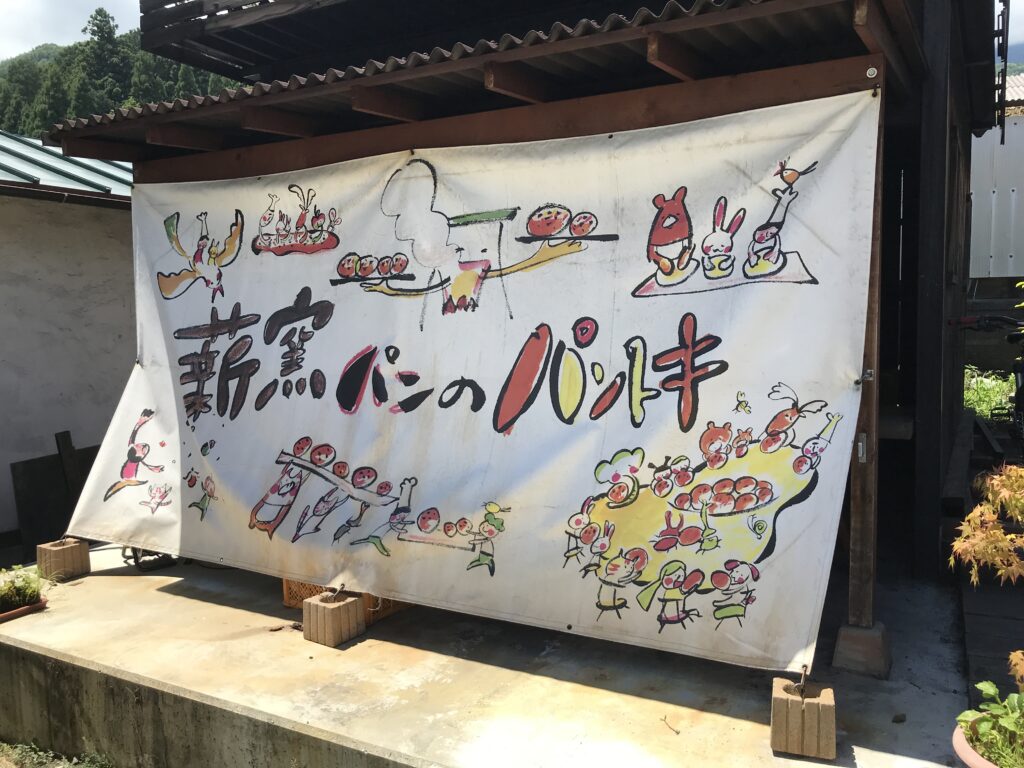 薪窯パンのパントキ